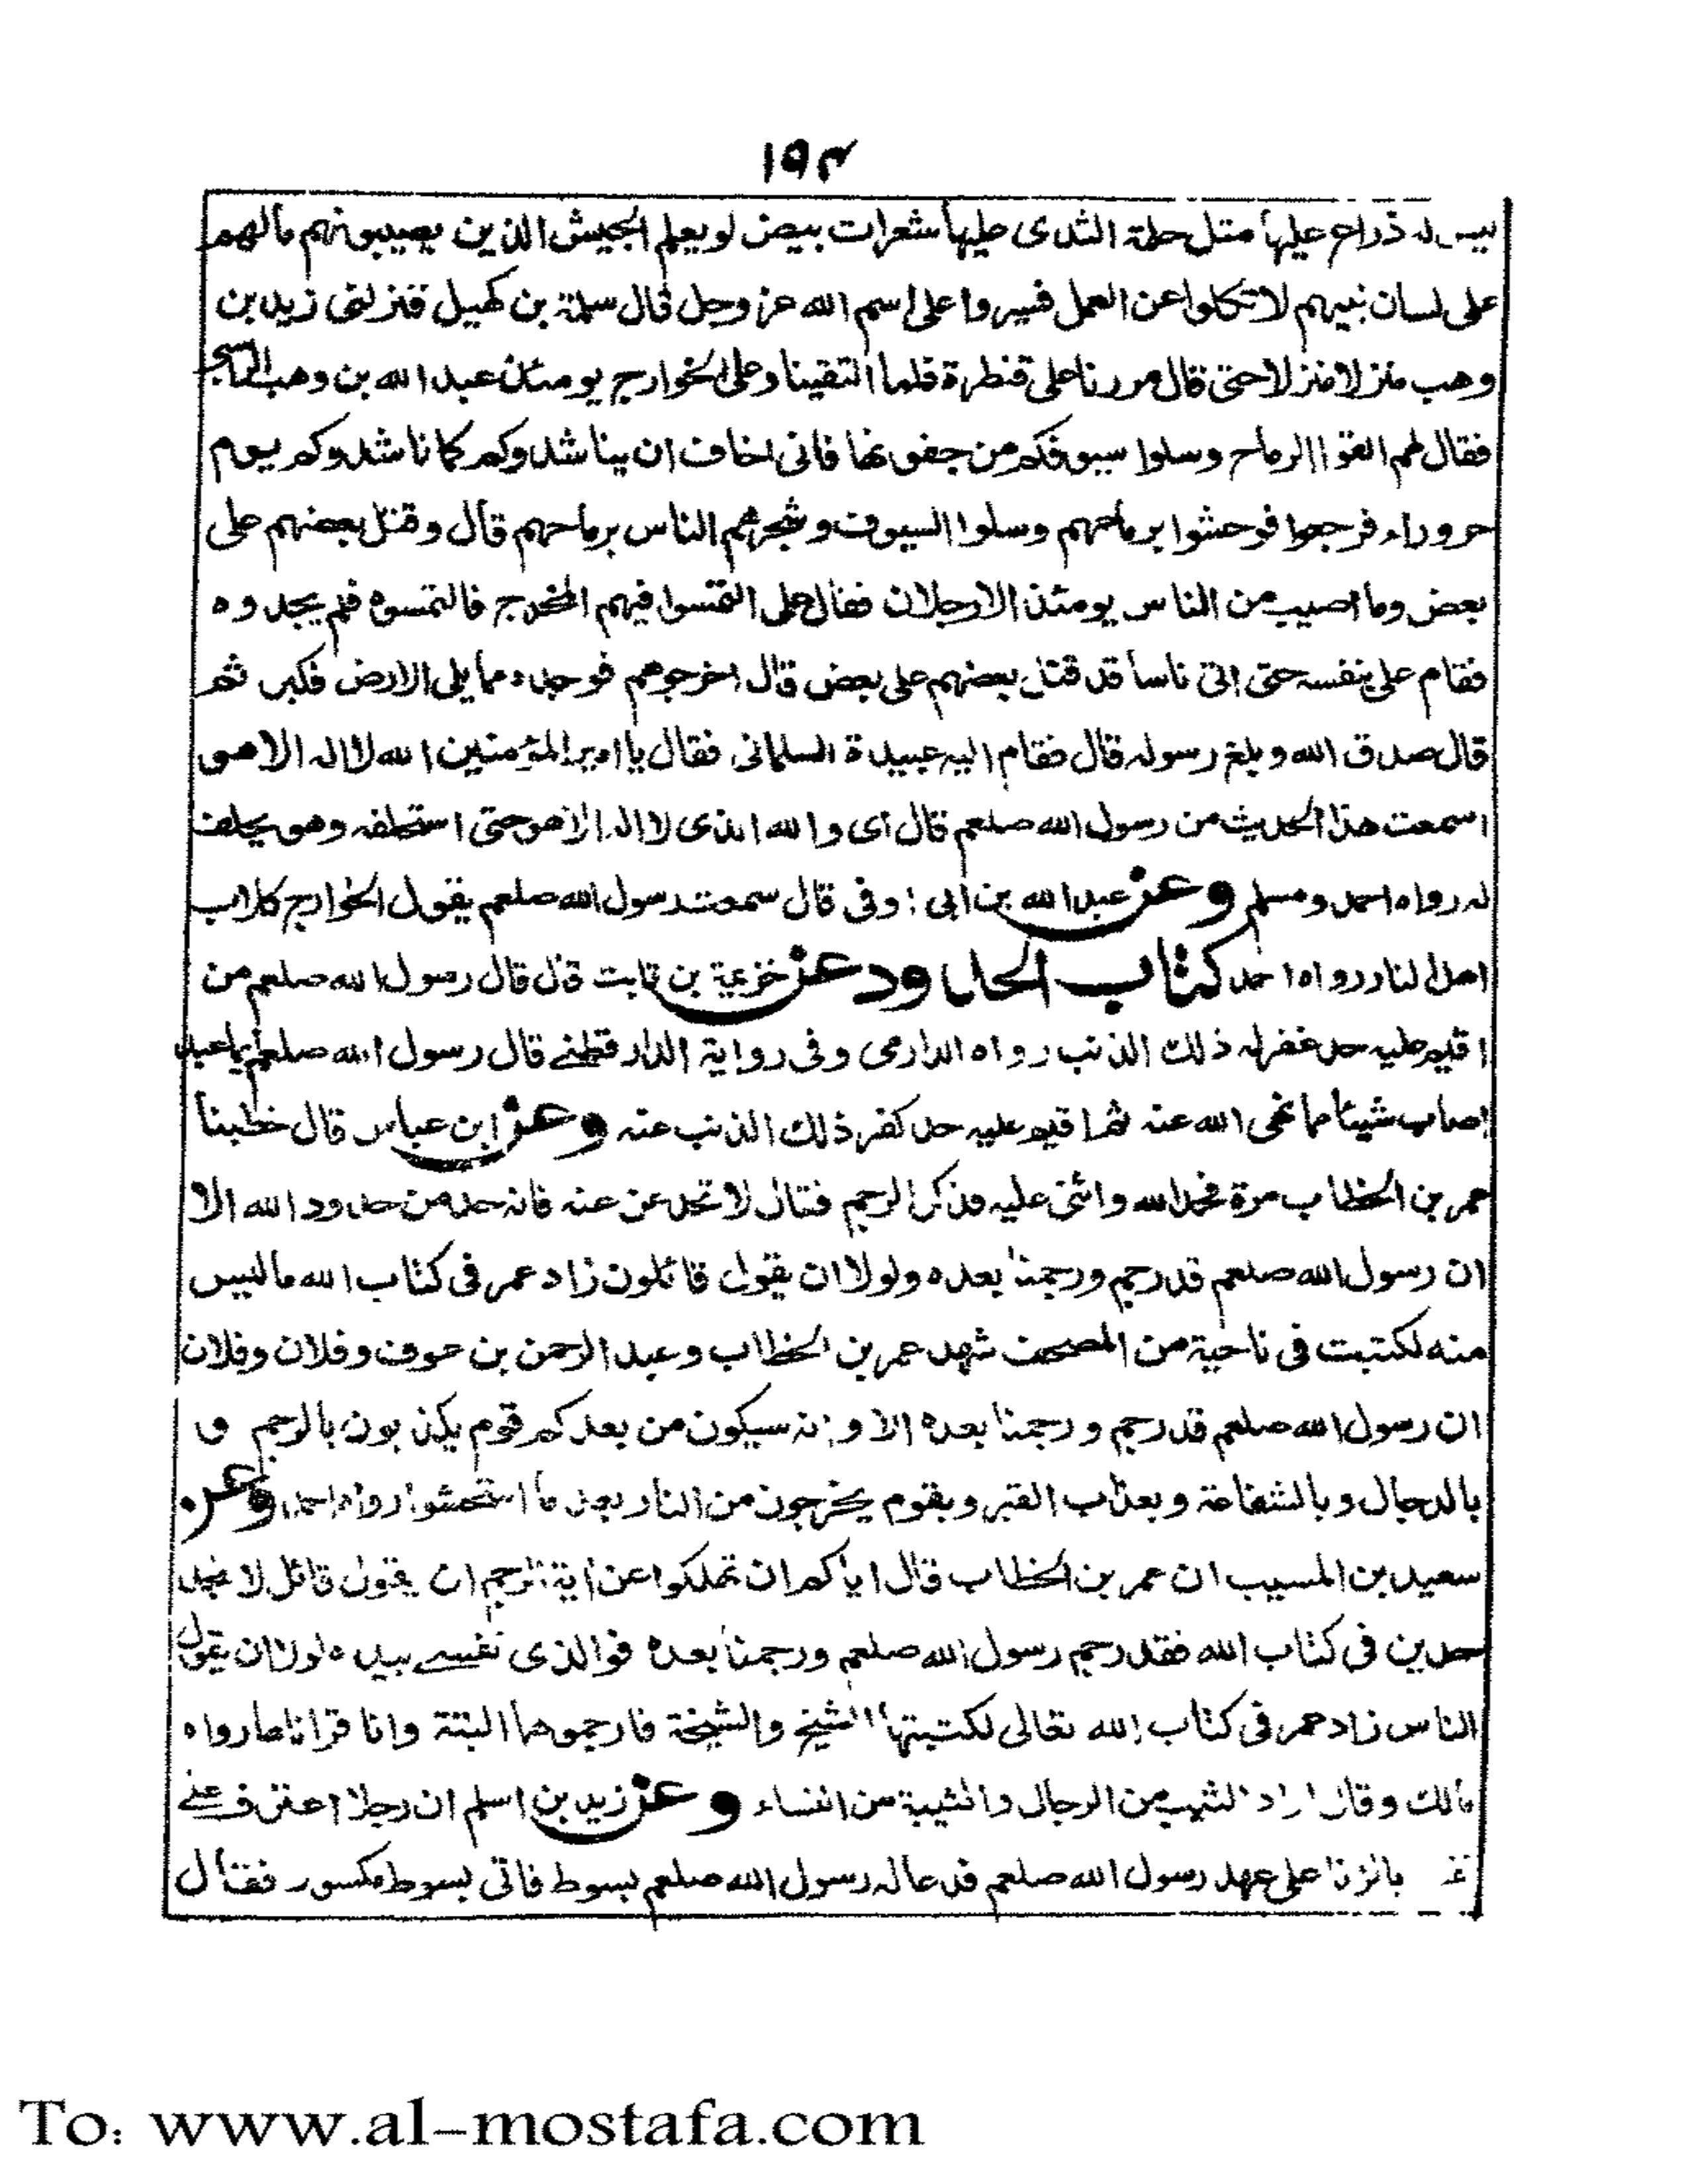 ١٥٣
ليس له ذراع عليها مثل حلمة الثدى عليها شعرات بيض لو يعلم الجيش الذين يصيبونهم مالهم
على لسان نبيهم لا تكلوا عن العمل فسيروا على اسم الله عز وجل قال سلمة بن كهيل فنزلنى زيد بن
وهب منزلا منزلا حتى قال مررنا على قنطرة فلما التقينا وعلى الخوارج يومئذ عبد الله بن وهب الراسبى
فقال لهم القوا الرماح وسلوا سيوفكم من جفونها فانى اخاف ان يناشدوكم كما ناشدوكم يوم
حروراء فرجعوا فوحشوا برماحهم وسلوا السيوف وشجرهم الناس برماحهم قال وقتل بعضهم على
بعض وما اصيب من الناس يومئذ الا رجلان فقال على التمسوا فيهم المخدج فالتمسوه فلم يجدوه
فقام على بنفسه حتى اتى ناسا قد قتل بعضهم على بعض قال اخرجوهم فوجده مما يلى الارض فكبر ثم
قال صدق الله وبلغ رسوله قال فقام اليه عبيدة السلمانى فقال يا امير المؤمنين الله لا اله الا هو
اسمعت هذا الحديث من رسول الله صلعم قال اى والله الذى لا اله الا هو حتى استحلفه وهو يحلف
له رواه احمد ومسلم وعن عبد الله بن ابى اوفى قال سمعت رسول الله صلعم يقول الخوارج كلاب
اهل النار رواه احمد كتاب الحدود عن خزيمة بن ثابت قال قال رسول الله صلعم من
اقيم عليه حد غفر له ذلك الذنب رواه الدارمى وفى رواية الدارقطنے قال رسول الله صلعم ايما عبد
اصاب شيئا مما نهى الله عنه ثم اقيم عليه حد كفر ذلك الذنب عنه وعن ابن عباس قال خطبنا
عمر بن الخطاب مرة فحمد الله واثنى عليه فذكر الرجم فقال لا تخدعن عنه فانه حد من حدود الله الا
ان رسول الله صلعم قد رجم ورجمنا بعده ولولا ان يقول قائلون زاد عمر فى كتاب الله ما ليس
منه لكتبت فى ناحية من المصحف شهد عمر بن الخطاب وعبد الرحمن بن عوف وفلان وفلان
ان رسول الله صلعم قد رجم ورجمنا بعده الا وانه سيكون من بعدكم قوم يكذبون بالرجم و
بالدجال وبالشفاعة وبعذاب القبر وبقوم يخرجون من النار بعد ما امتحشوا رواه احمد وعن
سعيد بن المسيب ان عمر بن الخطاب قال اياكم ان تهلكوا عن اية الرجم ان يقول قائل لا نجد
حدين فى كتاب الله فقد رجم رسول الله صلعم ورجمنا بعده فوالذى نفسے بيده لولا ان يقول
الناس زاد عمر فى كتاب الله تعالى لكتبتها الشيخ والشيخة فارجموهما البتة وانا قرأناها رواه
مالك وقال اراد الثيب من الرجال والثيبة من النساء وعن زيد بن اسلم ان رجلا اعترف علے
بالزنا على عهد رسول الله صلعم فدعا له رسول الله صلعم بسوط فاتى بسوط مكسور فقال
To: www.al-mostafa.com